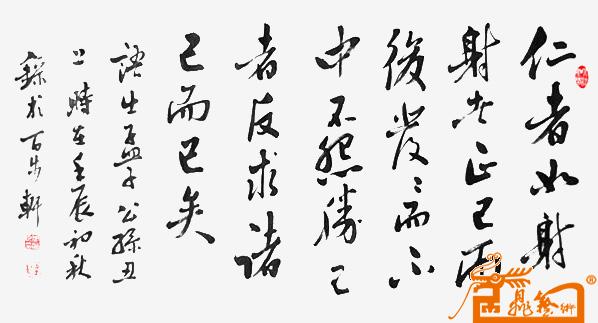 仁者如射
射者正己而
後發〻而不
中不怨勝己
者反求諸
己而已矣
語出孟子公孫丑
上時在壬辰初秋
錄於百步軒